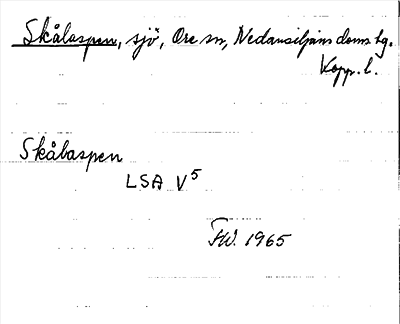 Skålaspen, sjö, Ore sn, Nedansiljans doms. tg.
Kopp. l.
Skåbaspen
LSA V5
FW. 1965